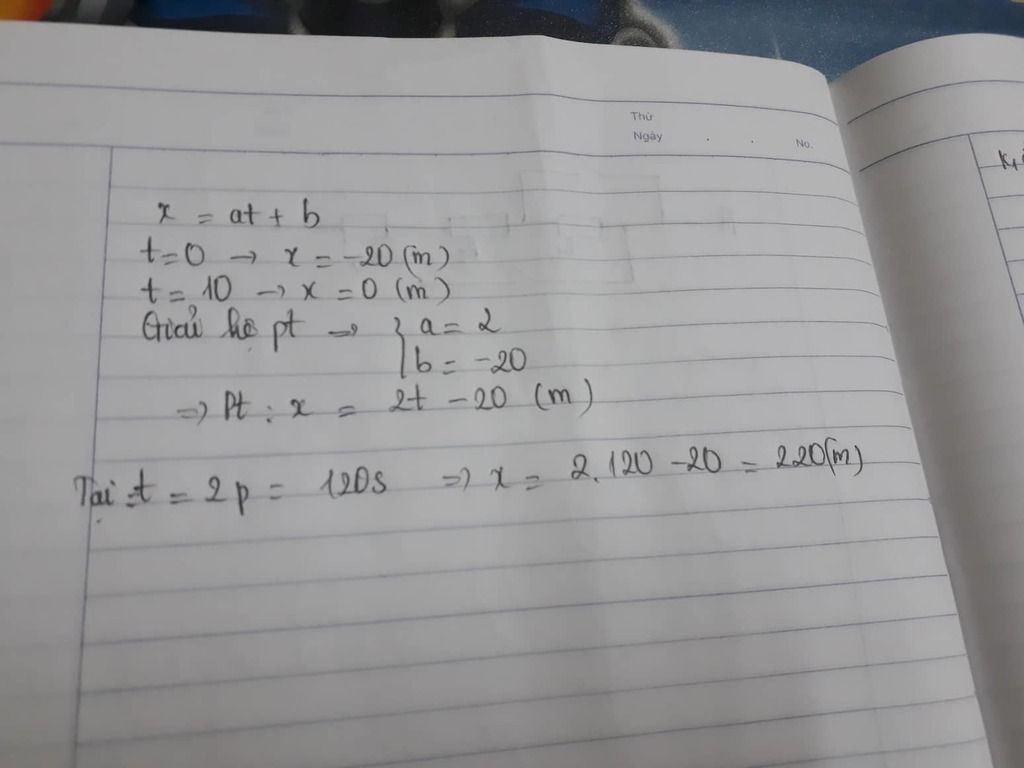 Thứ
Ngày . . No.
x = at + b
t=0 → x = -20 (m)
t = 10 → x = 0 (m)
Giải hệ pt → { a = 2
b = -20
=> Pt : x = 2t - 20 (m)
Tại t = 2p = 120s => x = 2.120 - 20 = 220(m)